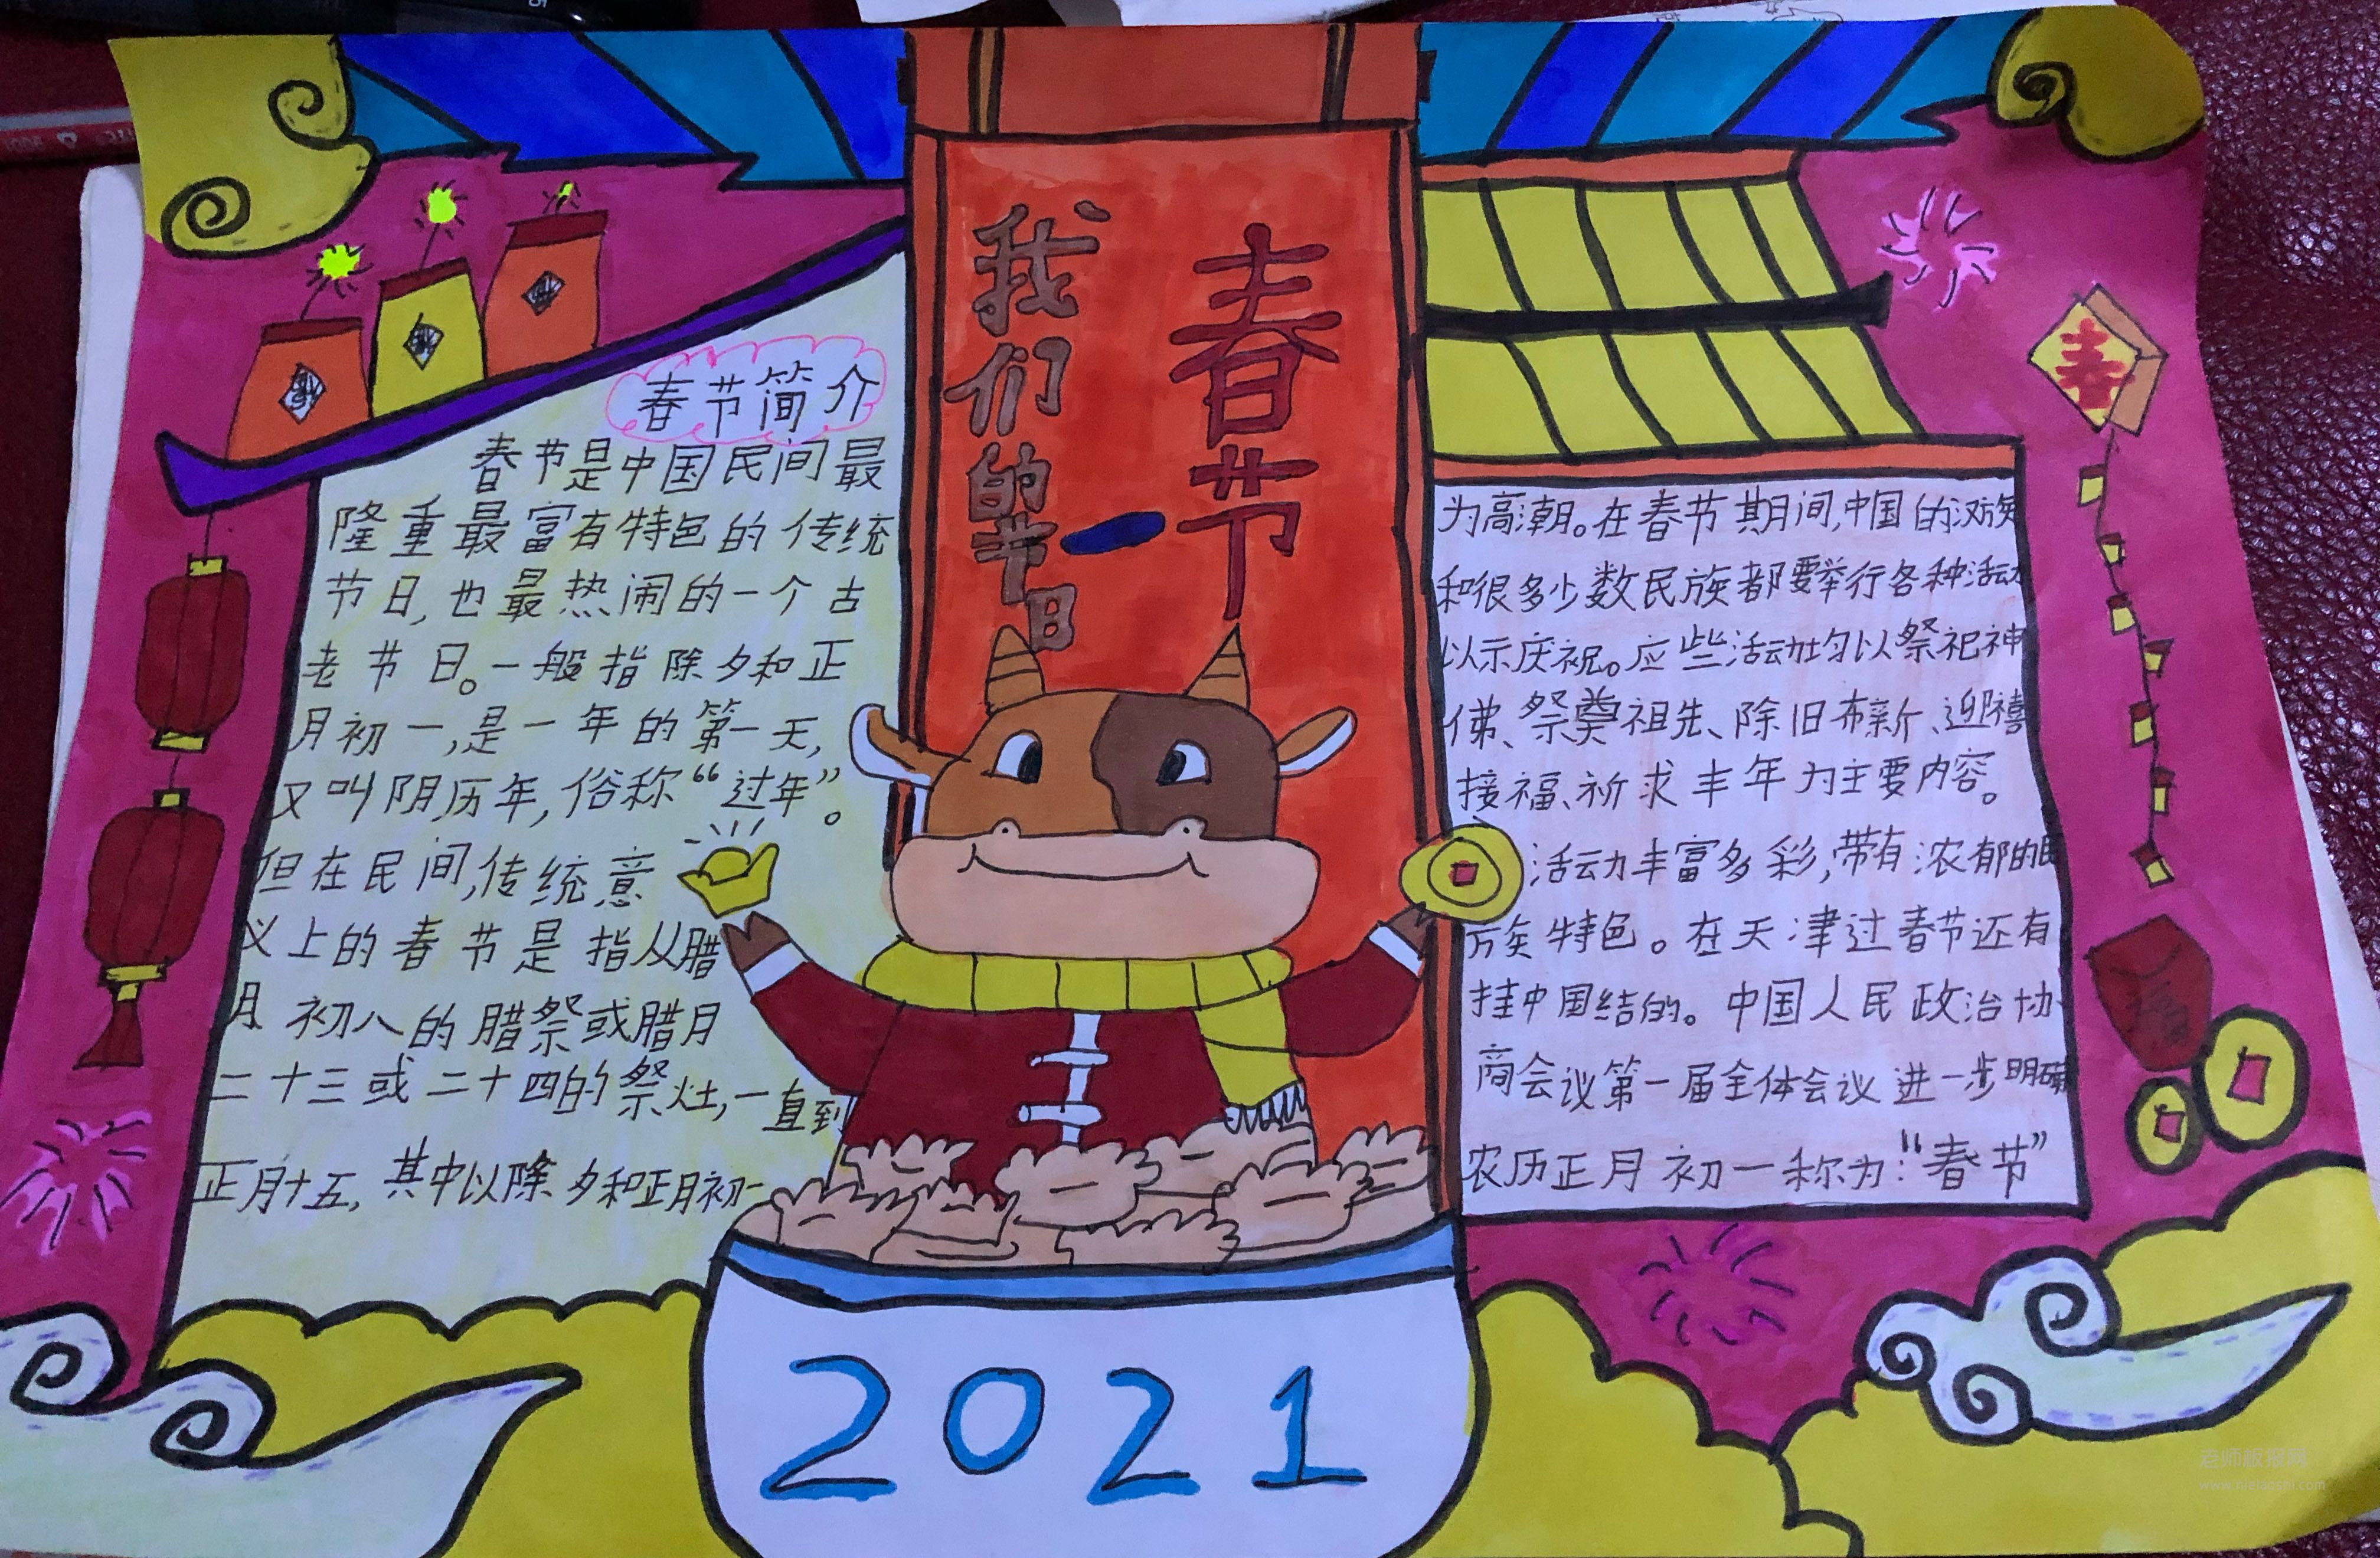 我们的节日
春节
春节简介
春节是中国民间最
隆重最富有特色的传统
节日,也最热闹的一个古
老节日。一般指除夕和正
月初一,是一年的第一天,
又叫阴历年,俗称“过年”。
但在民间,传统意
义上的春节是指从腊
月初八的腊祭或腊月
二十三或二十四的祭灶,一直到
正月十五,其中以除夕和正月初一
为高潮。在春节期间,中国的汉族
和很多少数民族都要举行各种活动
以示庆祝。这些活动均以祭祀神
佛、祭奠祖先、除旧布新、迎禧
接福、祈求丰年为主要内容。
活动丰富多彩,带有浓郁的民
族特色。在天津过春节还有
挂中国结的。中国人民政治协
商会议第一届全体会议进一步明确
农历正月初一称为:“春节”
春
2021